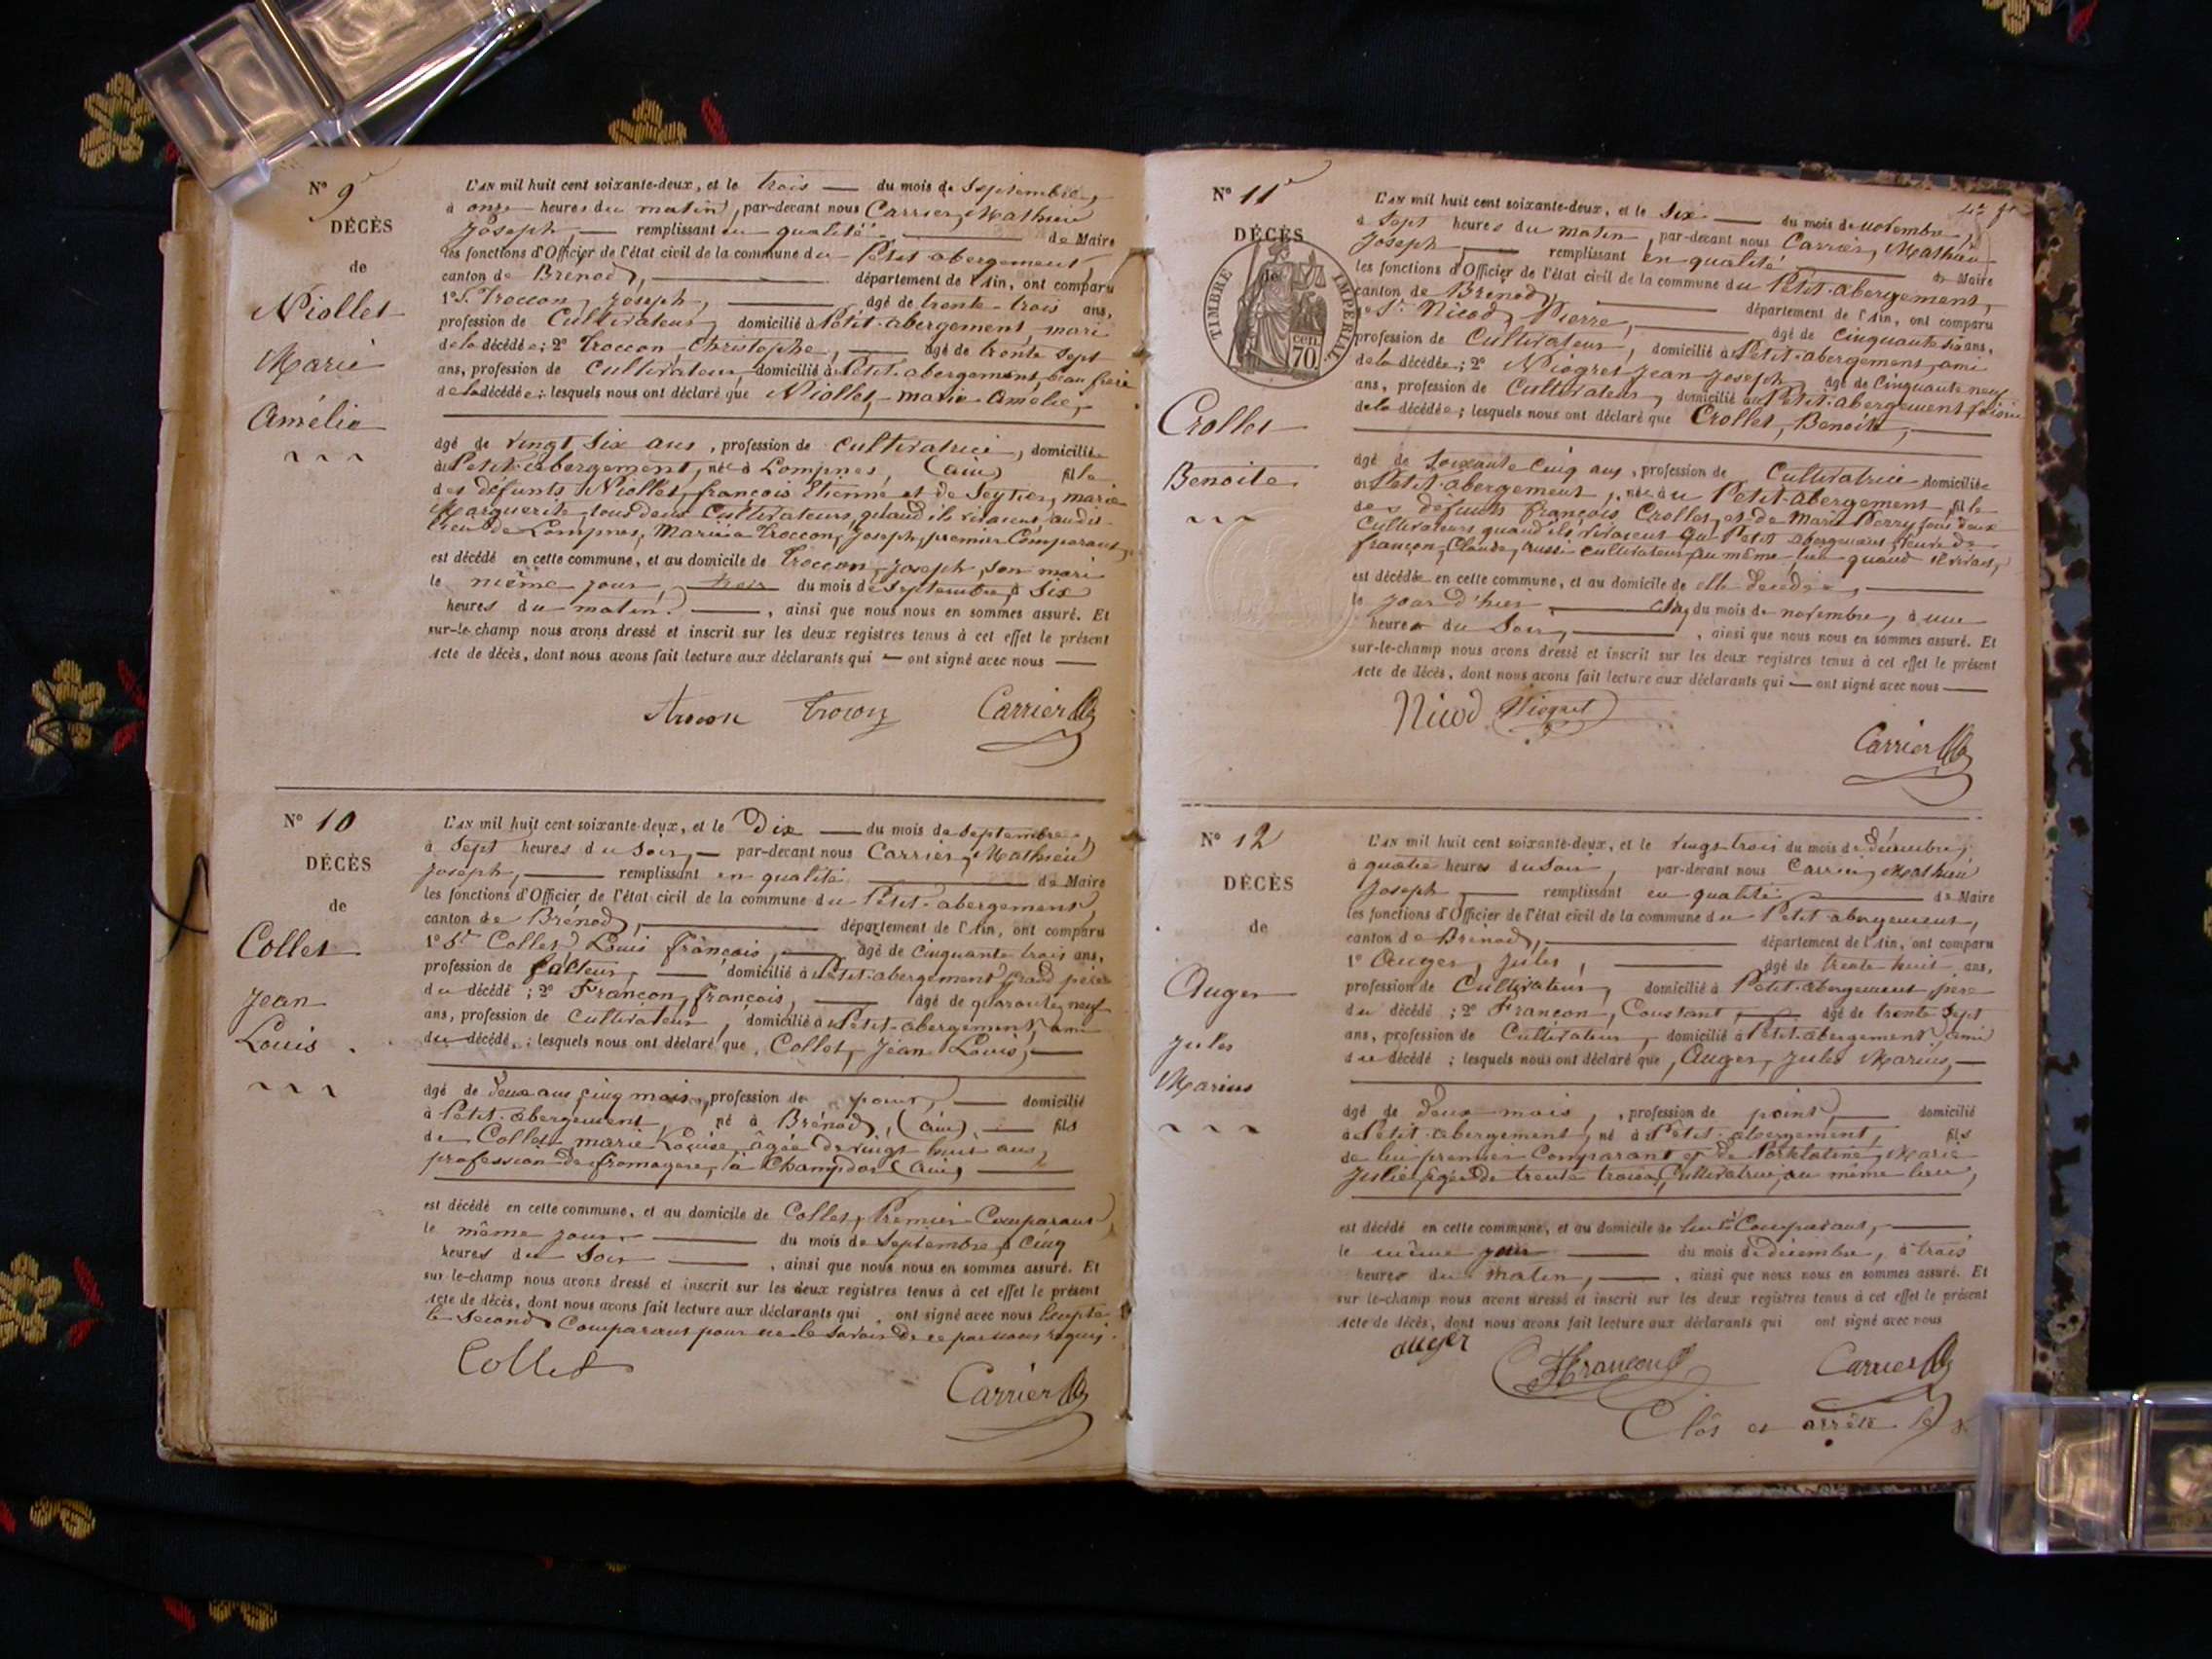 N° 9
DÉCÈS
de
Niollet
Marie
Amélie
L'AN mil huit cent soixante-deux, et le trois du mois de Septembre,
à onze heures du matin, par-devant nous Carrier, Mathieu
Joseph, remplissant en qualité de Maire
les fonctions d'Officier de l'état civil de la commune du Petit-abergement
canton de Brénod, département de l'Ain, ont comparu
1° S. Troccon, Joseph, âgé de trente-trois ans,
profession de Cultivateur, domicilié à Petit-abergement, mari
de la décédée; 2° Troccon Christophe, âgé de trente sept
ans, profession de Cultivateur, domicilié à Petit-abergement, beau frère
de la décédée; lesquels nous ont déclaré que Niollet, marie Amélie,
âgé de vingt six ans, profession de cultivatrice, domiciliée
à Petit-abergement, née à Lompnes, (ain) fille
des défunts Niollet, françois Etienne et de Seytier, marie
Marguerite, tous deux Cultivateurs, quand ils vivaient, audit
lieu de Lompnes, Mariée à Troccon, Joseph, premier Comparant,
est décédé en cette commune, et au domicile de Troccon, Joseph, son mari
le même jour, trois du mois de Septembre, à Six
heures du matin, ainsi que nous nous en sommes assuré. Et
sur-le-champ nous avons dressé et inscrit sur les deux registres tenus à cet effet le présent
Acte de décès, dont nous avons fait lecture aux déclarants qui ont signé avec nous
Trocon Carrier
N° 10
DÉCÈS
de
Collet
Jean
Louis
L'AN mil huit cent soixante-deux, et le Dix du mois de Septembre,
à Sept heures du Soir, par-devant nous Carrier, Mathieu
Joseph, remplissant en qualité de Maire
les fonctions d'Officier de l'état civil de la commune du Petit-abergement
canton de Brénod, département de l'Ain, ont comparu
1° Sr Collet Louis françois, âgé de Cinquante trois ans,
profession de facteur, domicilié à Petit-abergement, grand père
du décédé; 2° Françon, françois, âgé de quarante neuf
ans, profession de Cultivateur, domicilié à Petit-abergement, ami
du décédé; lesquels nous ont déclaré que Collet, Jean Louis,
âgé de deux ans cinq mois, profession de point, domicilié
à Petit-abergement, né à Brénod, (Ain), fils
de Collet marie Louise, âgée de vingt huit ans,
profession de fromagère, à Champdor (Ain)
est décédé en cette commune, et au domicile de Collet, Premier Comparant
le même jour du mois de Septembre à Cinq
heures du Soir, ainsi que nous nous en sommes assuré. Et
sur-le-champ nous avons dressé et inscrit sur les deux registres tenus à cet effet le présent
Acte de décès, dont nous avons fait lecture aux déclarants qui ont signé avec nous
le Second Comparant pour ne le savoir de ce par nous requis.
Collet
Carrier
N° 11
DÉCÈS
de
TIMBRE IMPÉRIAL
70 cen.
Crollet
Benoite
L'AN mil huit cent soixante-deux, et le Six du mois de novembre,
à Sept heures du matin, par-devant nous Carrier, Mathieu
Joseph remplissant en qualité de Maire
les fonctions d'Officier de l'état civil de la commune du Petit-abergement,
canton de Brénod, département de l'Ain, ont comparu
1° Sr Nicod, Pierre, âgé de Cinquante six ans,
profession de Cultivateur, domicilié à Petit-abergement, ami
de la décédée; 2° Niogret Jean Joseph, âgé de Cinquante neuf
ans, profession de Cultivateur, domicilié au Petit-abergement
de la décédée; lesquels nous ont déclaré que Crollet, Benoite,
âgé de Soixante cinq ans, profession de Cultivatrice domiciliée
à Petit-abergement, née au Petit-Abergement, fille
des défunts françois Crollet, et de Marie Perry tous deux
Cultivateurs quand ils vivaient au Petit abergement, Veuve de
françon, Claude, aussi cultivateur au même lieu quand il vivait,
est décédée en cette commune, et au domicile de elle décédée,
le jour d'hier, Cinq du mois de novembre, à une
heure du Soir, ainsi que nous nous en sommes assuré. Et
sur-le-champ nous avons dressé et inscrit sur les deux registres tenus à cet effet le présent
Acte de décès, dont nous avons fait lecture aux déclarants qui ont signé avec nous
Nicod Niogret
Carrier
N° 12
DÉCÈS
de
Auger
Jules
Marius
L'AN mil huit cent soixante-deux, et le vingt trois du mois de décembre,
à quatre heures du Soir, par-devant nous Carrier, Mathieu
Joseph remplissant en qualité de Maire
les fonctions d'Officier de l'état civil de la commune du Petit abergement,
canton de Brénod, département de l'Ain, ont comparu
1° Auger, Jules, âgé de trente huit ans,
profession de Cultivateur, domicilié à Petit-abergement père
du décédé; 2° Françon, Constant, âgé de trente Sept
ans, profession de Cultivateur, domicilié à Petit-abergement ami
du décédé; lesquels nous ont déclaré que, Auger, Jules Marius,
âgé de deux mois, profession de point, domicilié
à Petit-abergement, né à Petit-abergement, fils
de lui premier Comparant et de Marie
Julie, âgée de trente trois, Cultivatrice, au même lieu,
est décédé en cette commune, et au domicile de Comparant,
le même jour du mois de décembre, à trois
heures du matin, ainsi que nous nous en sommes assuré. Et
sur-le-champ nous avons dressé et inscrit sur les deux registres tenus à cet effet le présent
Acte de décès, dont nous avons fait lecture aux déclarants qui ont signé avec nous
auger
Françon Carrier
Clos et arrêté le